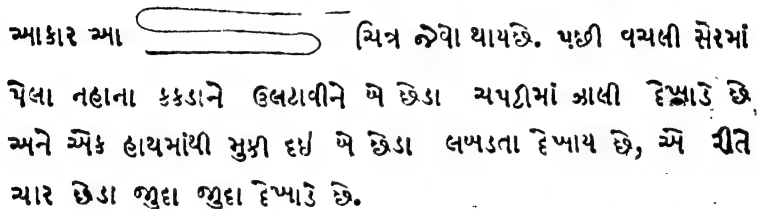 આકાર આ ચિત્ર જેવો થાયછે. પછી વચલી સેરમાં
પેલા નહાના કકડાને ઉલટાવીને બે છેડા ચપટીમાં ઝાલી દેખાડે છે,
અને એક હાથમાંથી મુકી દઇ બે છેડા લબડતા દેખાય છે, એ રીતે
ચાર છેડા જીુદા જીુદા દેખાડે છે.